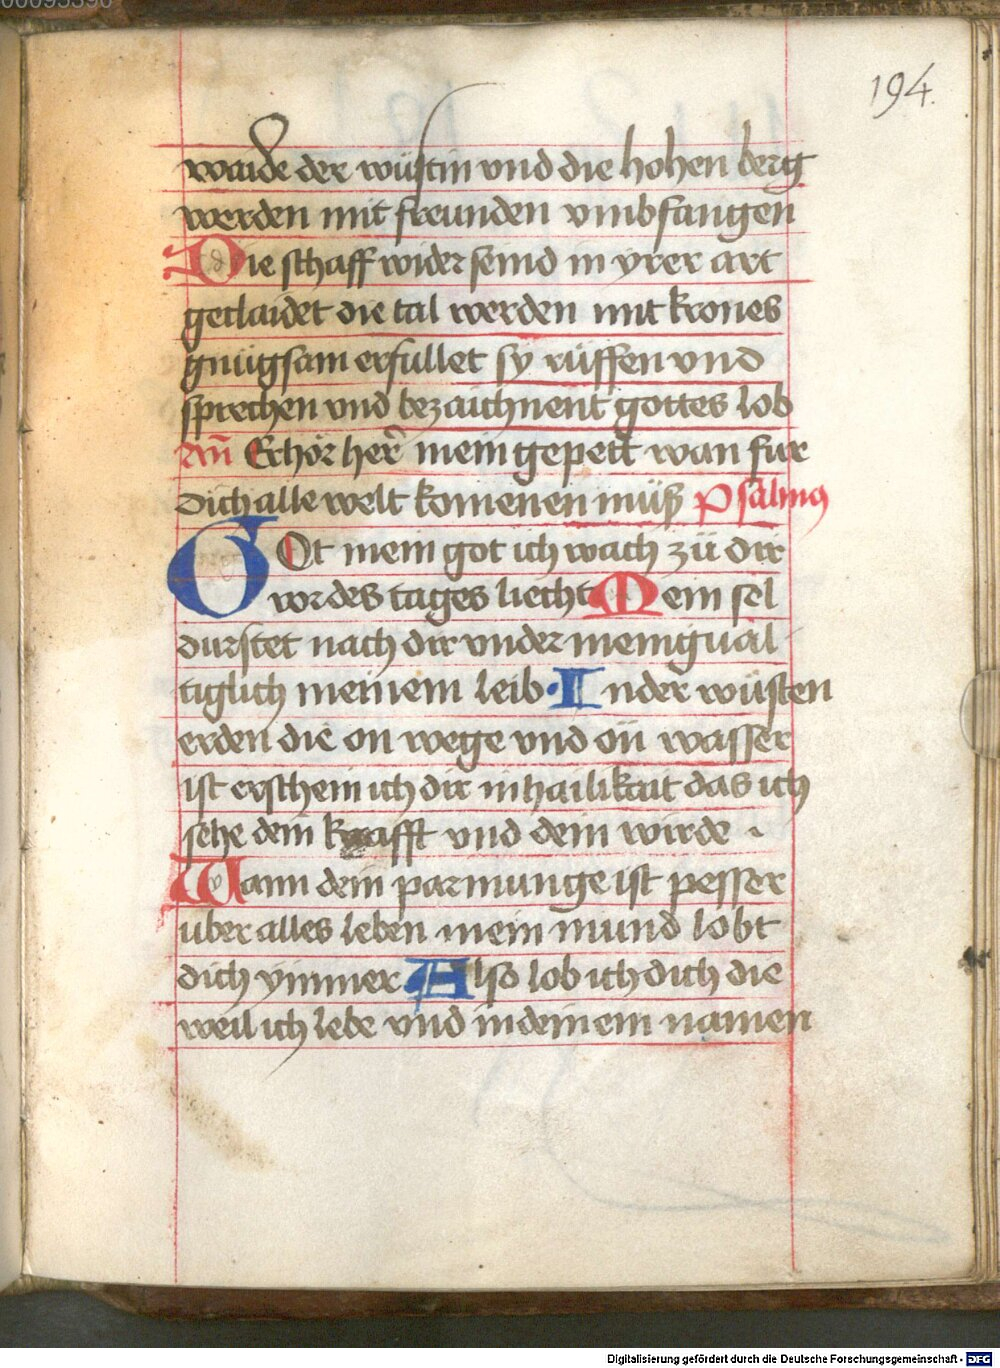 00095396
194.
waide der wüstin vnd die hohen berg
werden mit freunden vmbfangen
Die schaff wider seind in yrer art
geclaidet die tal werden mit krones
gnügsam erfullet sy rüffen vnd
sprechen vnd bezaichnent gottes lob
An̄ Erhör her̄ mein gepett wan fur
dich alle welt komenen müß Psalmꝰ
GOt mein got ich wach zü dir
vor des tages liecht Mein sel
durstet nach dir vnder menigual
tiglich meinem leib · In der wüsten
erden die on wege vnd on wasser
ist erschein ich dir in hailikait das ich
sehe dein krafft vnd dein wirde .
Wann dein parmunge ist pesser
uber alles leben mein mund lobt
dich ymmer Also lob ich dich die
weil ich lebe vnd in deinem namen
Digitalisierung gefördert durch die Deutsche Forschungsgemeinschaft - DFG